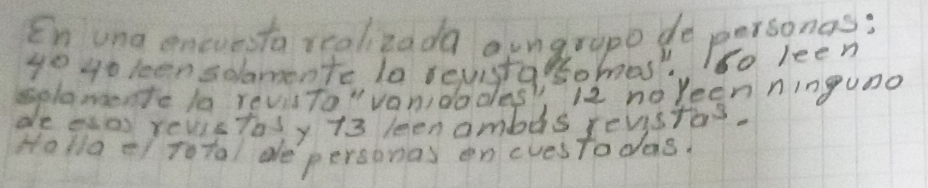 En una encuesta realizada a un grupo de personas:
40 40 leen solamente la revista "Somos". 60 leen
solamente la revista "vanidades", 12 no leen ninguno
de esas revistas y 13 leen ambas revistas.
Halla el total de personas encuestadas.